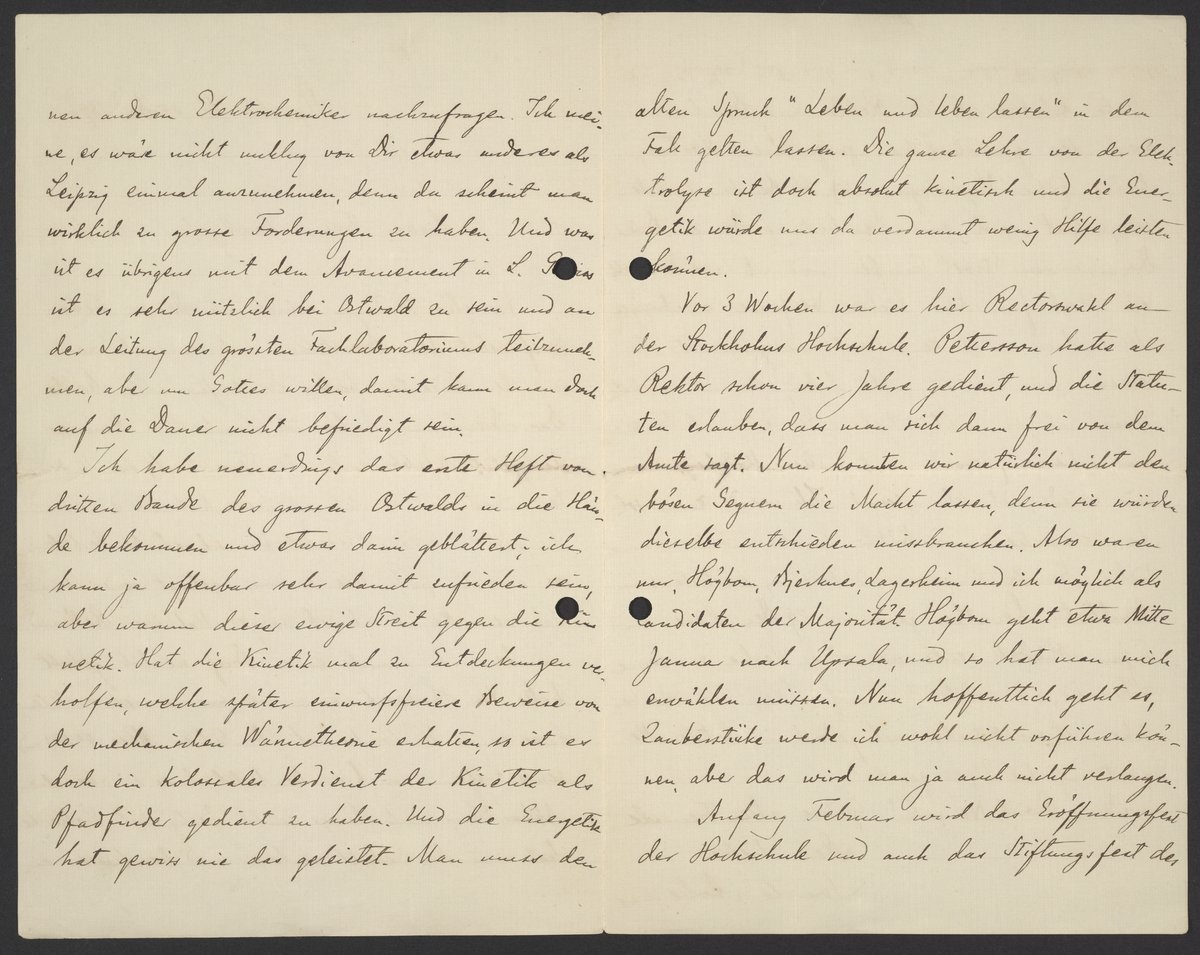 nen anderen Elektrochemiker nachzufragen. Ich mei-
ne, es wäre nicht unklug von Dir etwas anderes als
Leipzig einmal anzunehmen, denn da scheint man
wirklich zu grosse Forderungen zu haben. Und was
ist es übrigens mit dem Avancement in L.
ist es sehr nützlich bei Ostwald zu sein und an
der Leitung des grössten Fachlaboratoriums teilzuneh-
men, aber um Gottes willen, damit kann man doch
auf die Dauer nicht befriedigt sein.
Ich habe neuerdings das erste Heft vom
dritten Bande des grossen Ostwalds in die Hän-
de bekommen und etwas darin geblättert; ich
kann ja offenbar sehr damit zufrieden sein,
aber warum dieser ewige Streit gegen die Kine
netik. Hat die Kinetik mal zu Entdeckungen ver-
holfen, welche später einwurfsfreiere Beweise von
der mechanischen Wärmetheorie erhalten, so ist es
doch ein kolossales Verdienst der Kinetik als
Pfadfinder gedient zu haben. Und die Energetik
hat gewiss nie das geleistet. Man muss den
alten Spruch "Leben und leben lassen" in dem
Fall gelten lassen. Die ganze Lehre von der Elek-
trolyse ist doch absolut kinetisch und die Ener-
getik würde uns da verdammt wenig Hilfe leisten
können.
Vor 3 Wochen war es hier Rectorswahl an
der Stockholms Hochschule. Pettersson hatte als
Rektor schon vier Jahre gedient, und die Statu-
ten erlauben, dass man sich dann frei von dem
Amte sagt. Nun konnten wir natürlich nicht den
bösen Gegnern die Macht lassen, denn sie würden
dieselbe entschieden missbrauchen. Also waren
nur, Högbom, Bjerknes, Lagerheim und ich möglich als
Candidaten der Majorität. Högbom geht etwa Mitte
Januar nach Upsala, und so hat man mich
erwählen müssen. Nun hoffentlich geht es,
Zauberstücke werde ich wohl nicht vorführen kön-
nen, aber das wird man ja auch nicht verlangen.
Anfang Februar wird das Eröffnungsfest
der Hochschule und auch das Stiftungsfest des